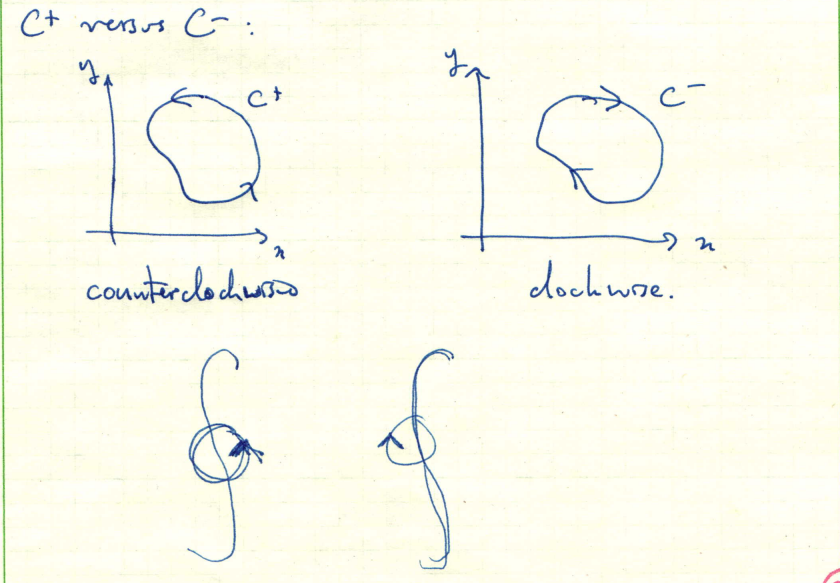 C+ versus C- :
y C+ y C-
x x
counterclockwise clockwise.
∳ ∲